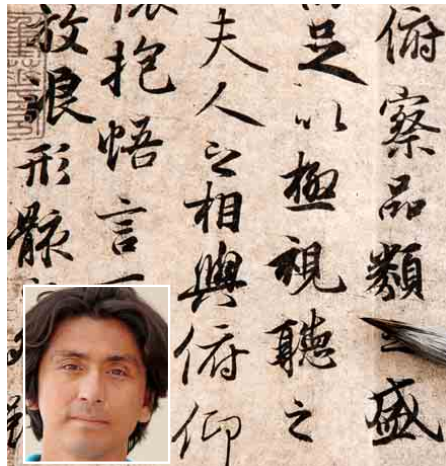 俯察品類之盛
足以極視聽之
夫人之相與俯仰
懷抱悟言一
放浪形骸